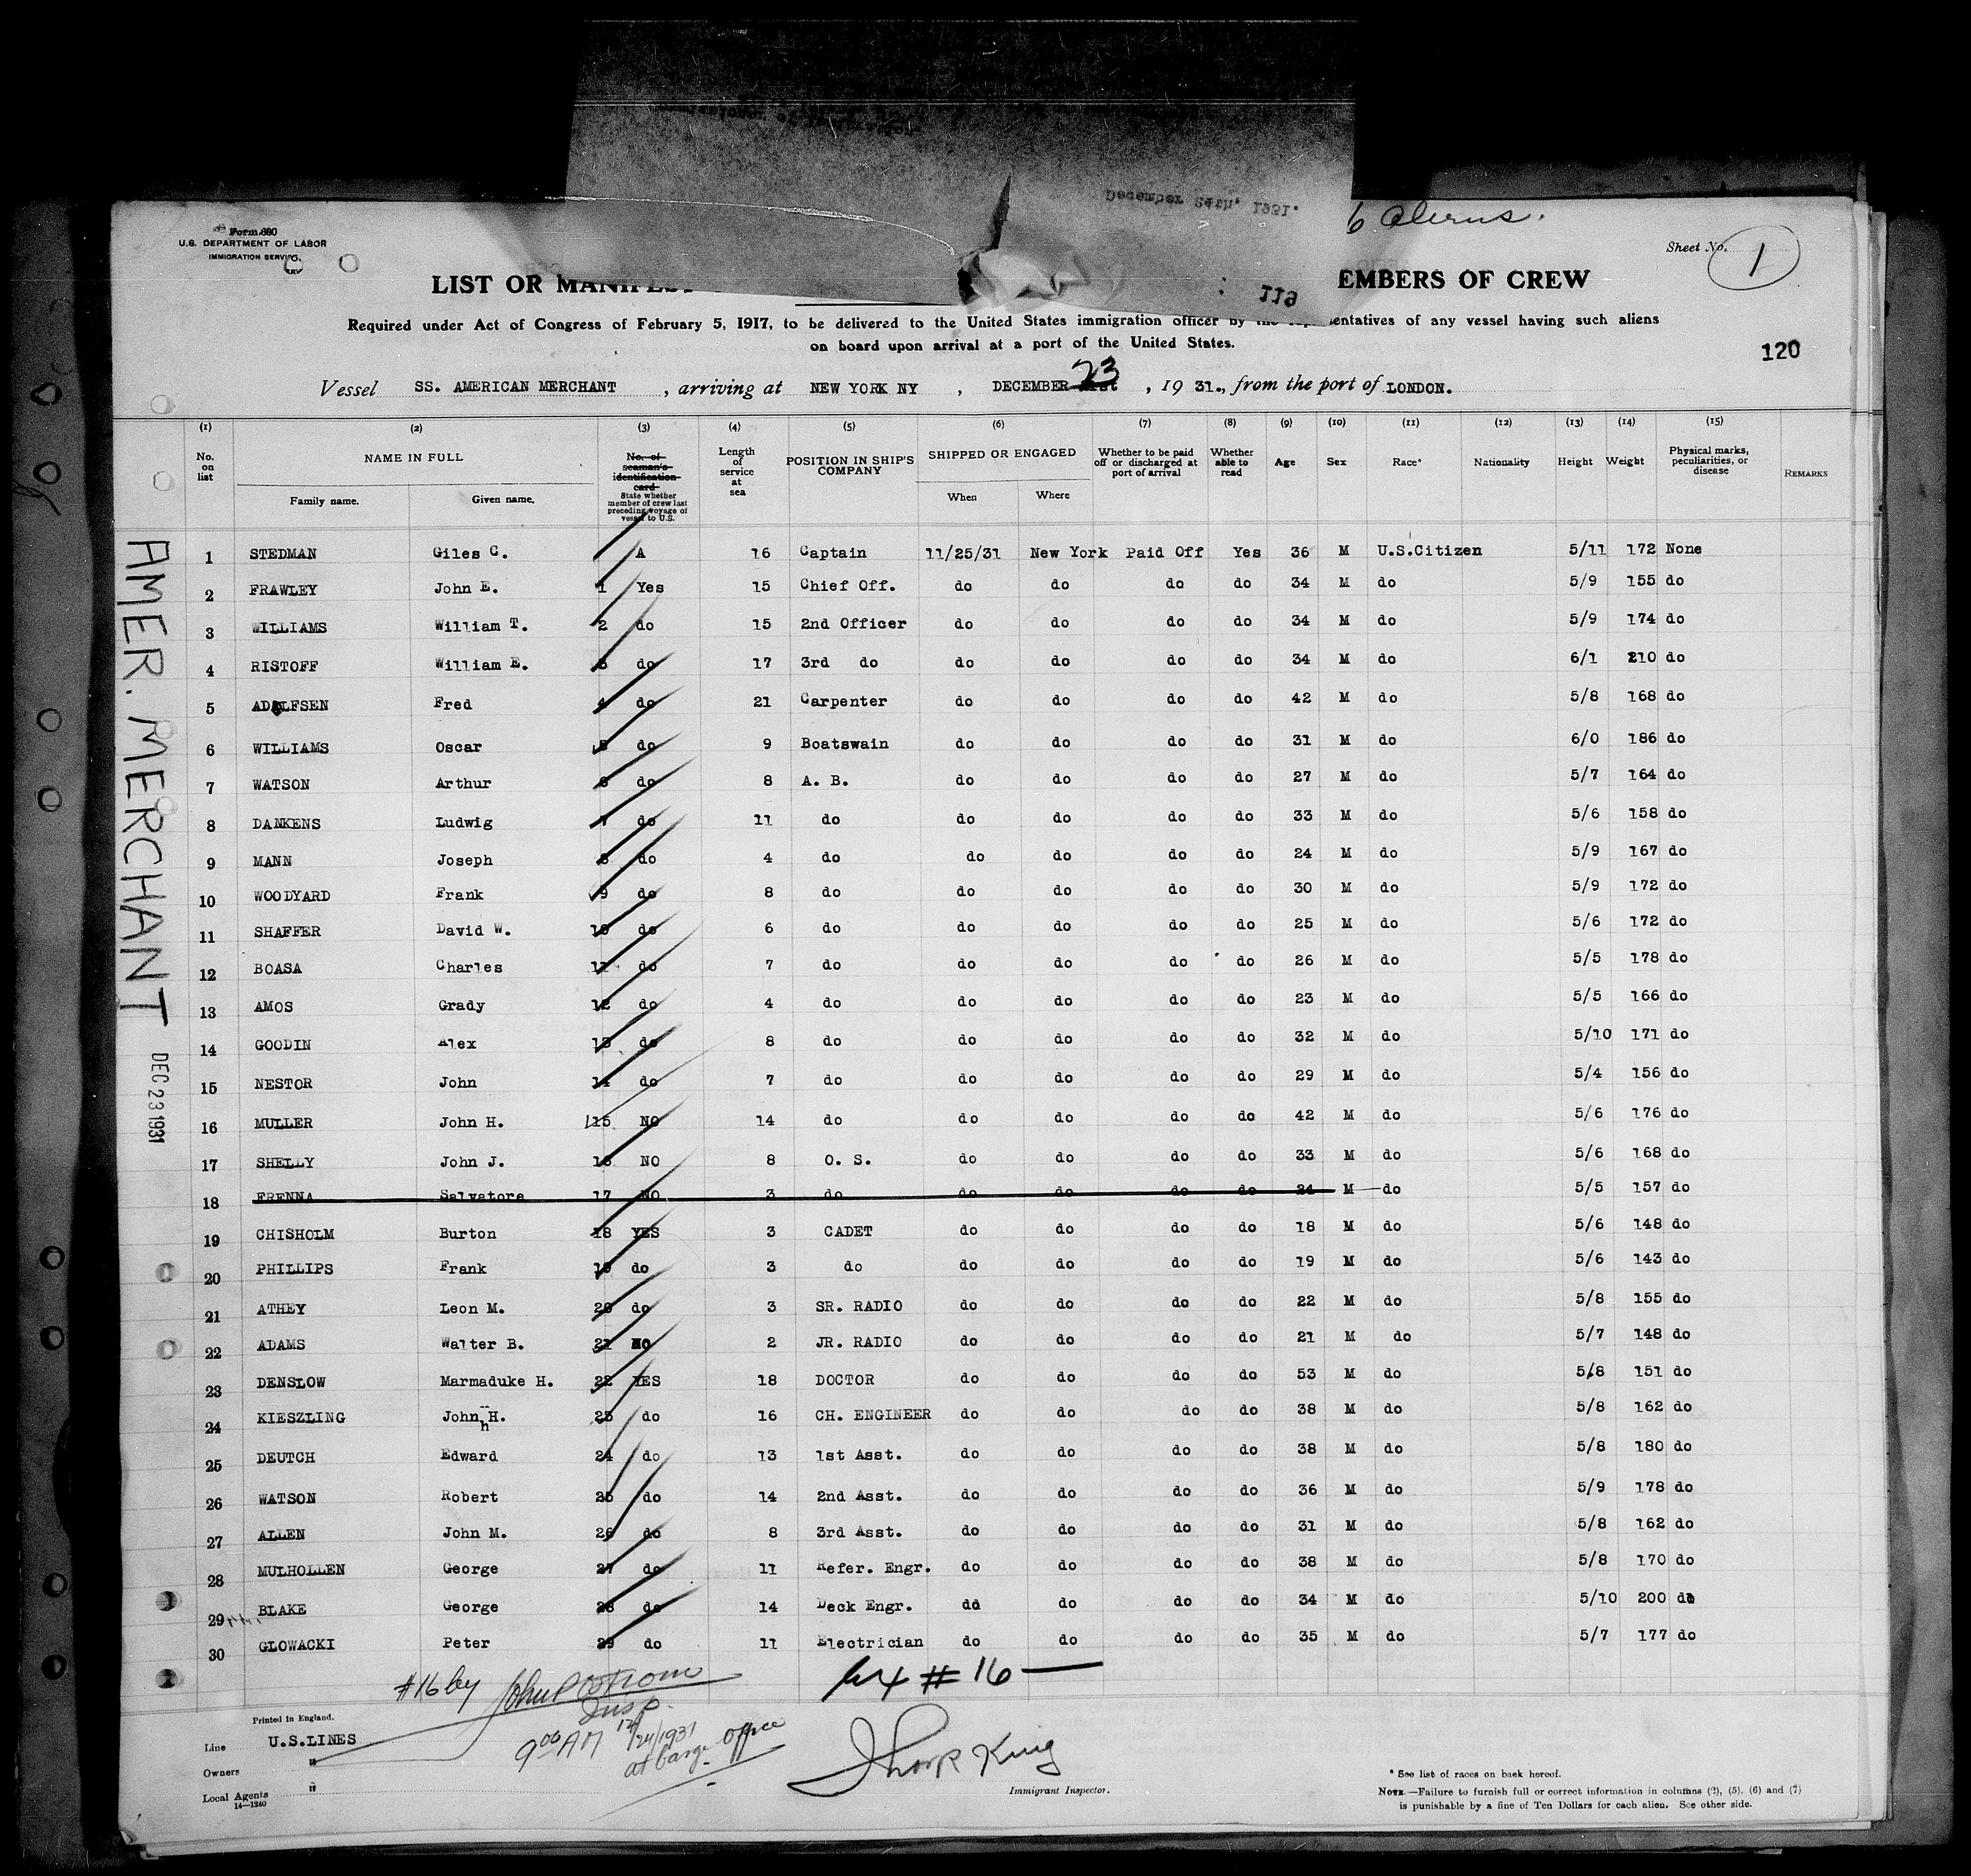 December 24th 1931.
6 Aliens.
Form 680
U.S. DEPARTMENT OF LABOR
IMMIGRATION SERVICE
Sheet No. 1
LIST OR MANIFEST EMBERS OF CREW
119
Required under Act of Congress of February 5, 1917, to be delivered to the United States immigration officer by the representatives of any vessel having such aliens
on board upon arrival at a port of the United States.
120
Vessel SS. AMERICAN MERCHANT , arriving at NEW YORK NY , DECEMBER 23 , 19 31., from the port of LONDON.
(1) (2) (3) (4) (5) (6) (7) (8) (9) (10) (11) (12) (13) (14) (15)
No. on list NAME IN FULL Family name. Given name. No. of seaman's identification card State whether member of crew last preceding voyage of vessel to U.S. Length of service at sea POSITION IN SHIP'S COMPANY SHIPPED OR ENGAGED When Where Whether to be paid off or discharged at port of arrival Whether able to read Age Sex Race* Nationality Height Weight Physical marks, peculiarities, or disease REMARKS
1 STEDMAN Giles C. A 16 Captain 11/25/31 New York Paid Off Yes 36 M U.S.Citizen 5/11 172 None
2 FRAWLEY John E. 1 Yes 15 Chief Off. do do do do 34 M do 5/9 155 do
3 WILLIAMS William T. 2 do 15 2nd Officer do do do do 34 M do 5/9 174 do
4 RISTOFF William E. 3 do 17 3rd do do do do do 34 M do 6/1 210 do
5 ADOLFSEN Fred 4 do 21 Carpenter do do do do 42 M do 5/8 168 do
6 WILLIAMS Oscar 5 do 9 Boatswain do do do do 31 M do 6/0 186 do
7 WATSON Arthur 6 do 8 A. B. do do do do 27 M do 5/7 164 do
8 DANKENS Ludwig 7 do 11 do do do do do 33 M do 5/6 158 do
9 MANN Joseph 8 do 4 do do do do do 24 M do 5/9 167 do
10 WOODYARD Frank 9 do 8 do do do do do 30 M do 5/9 172 do
11 SHAFFER David W. 10 do 6 do do do do do 25 M do 5/6 172 do
12 BOASA Charles 11 do 7 do do do do do 26 M do 5/5 178 do
13 AMOS Grady 12 do 4 do do do do do 23 M do 5/5 166 do
14 GOODIN Alex 13 do 8 do do do do do 32 M do 5/10 171 do
15 NESTOR John 14 do 7 do do do do do 29 M do 5/4 156 do
16 MULLER John H. 15 NO 14 do do do do do 42 M do 5/6 176 do
17 SHELLY John J. 16 NO 8 O. S. do do do do 33 M do 5/6 168 do
18 FRENNA Salvatore 17 NO 3 do do do do do 24 M do 5/5 157 do
19 CHISHOLM Burton 18 YES 3 CADET do do do do 18 M do 5/6 148 do
20 PHILLIPS Frank 19 do 3 do do do do do 19 M do 5/6 143 do
21 ATHEY Leon M. 20 do 3 SR. RADIO do do do do 22 M do 5/8 155 do
22 ADAMS Walter B. 21 NO 2 JR. RADIO do do do do 21 M do 5/7 148 do
23 DENSLOW Marmaduke H. 22 YES 18 DOCTOR do do do do 53 M do 5/8 151 do
24 KIESZLING John H. 23 do 16 CH. ENGINEER do do do do 38 M do 5/8 162 do
25 DEUTCH Edward 24 do 13 1st Asst. do do do do 38 M do 5/8 180 do
26 WATSON Robert 25 do 14 2nd Asst. do do do do 36 M do 5/9 178 do
27 ALLEN John M. 26 do 8 3rd Asst. do do do do 31 M do 5/8 162 do
28 MULHOLLEN George 27 do 11 Refer. Engr. do do do do 38 M do 5/8 170 do
29 BLAKE George 28 do 14 Deck Engr. dd do do do 34 M do 5/10 200 do
30 GLOWACKI Peter 29 do 11 Electrician do do do do 35 M do 5/7 177 do
AMER. MERCHANT DEC 23 1931
#16 by John P
Insp.
# 16
9 00 AM 12/24/1931
at barge office
Printed in England.
Line U.S.LINES
Owners "
Local Agents "
14—1240
Thorp King
Immigrant Inspector.
* See list of races on back hereof.
NOTE.—Failure to furnish full or correct information in columns (2), (5), (6) and (7)
is punishable by a fine of Ten Dollars for each alien. See other side.